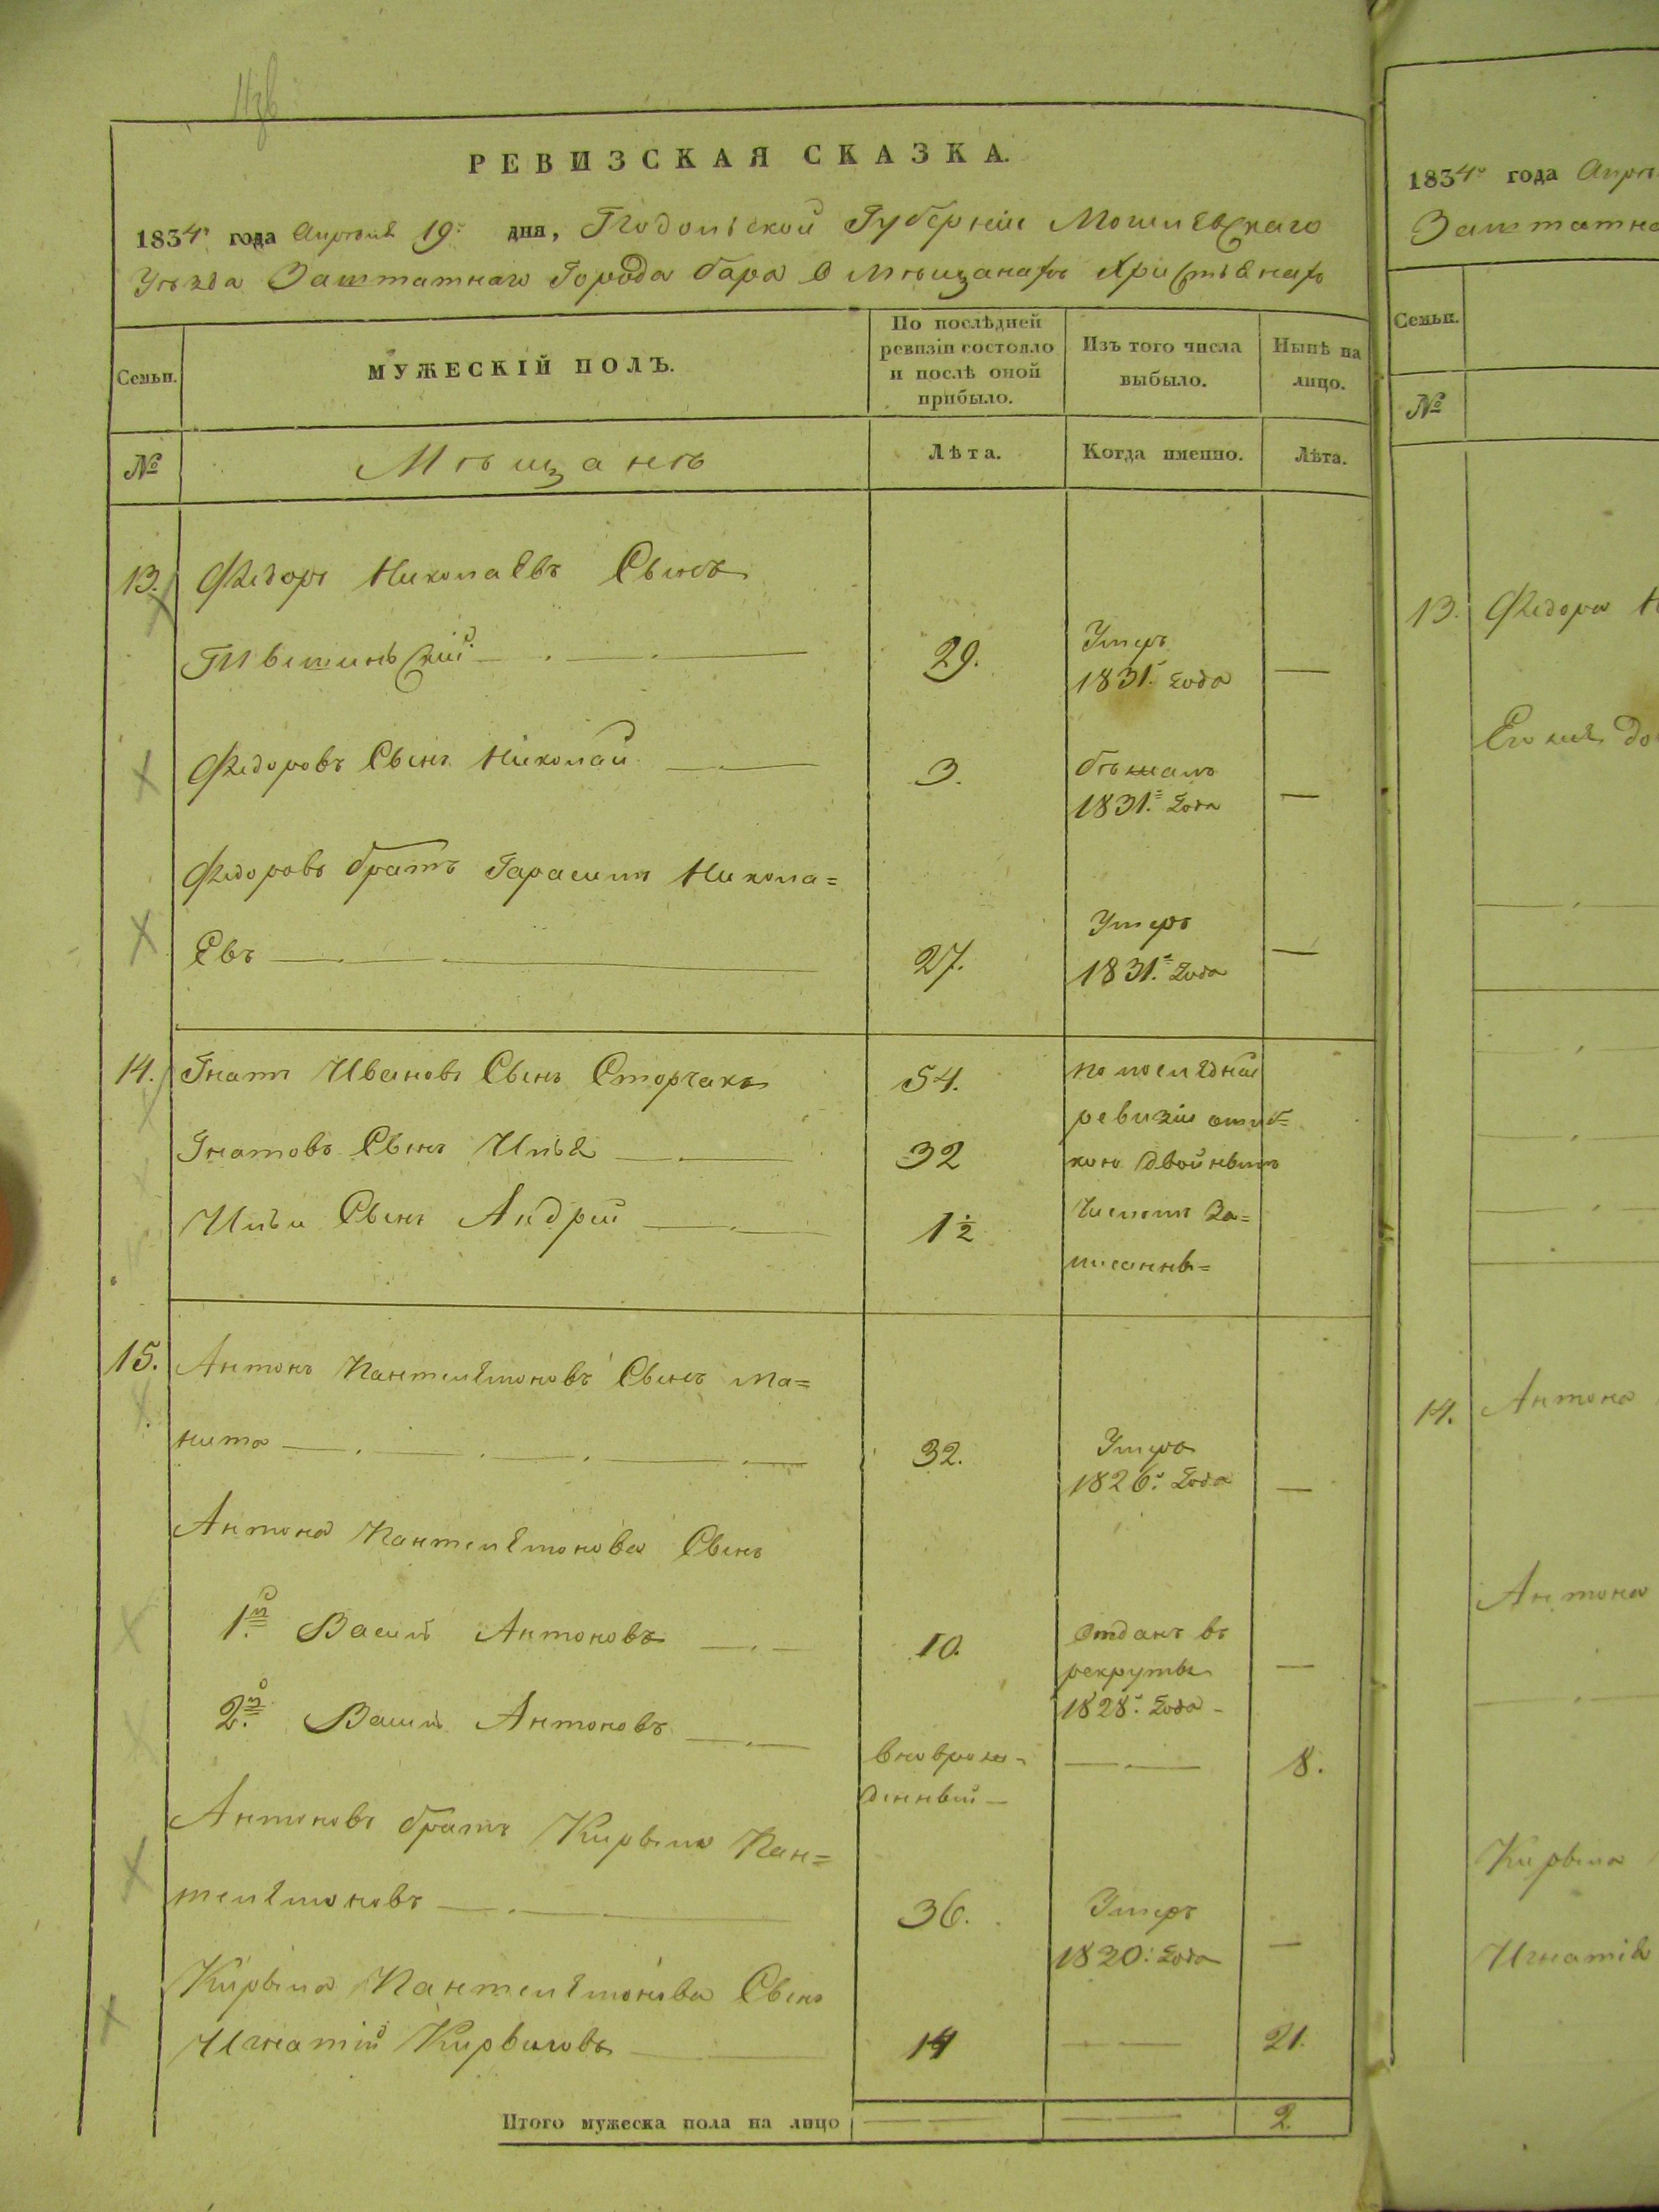 РЕВИЗСКАЯ СКАЗКА.
1834го года Апрѣля 19го дня, Подольской Губерніи Могилевскаго
Уѣзда Заштатнаго Города Бара о мѣщанахъ Христіянахъ
Семьи.
МУЖЕСКІЙ ПОЛЪ.
По послѣдней ревизіи состояло и послѣ оной прибыло.
Изъ того числа выбыло.
Нынѣ на лицо.
№
Мѣщанъ
Лѣта.
Когда именно.
Лѣта.
13. Федоръ Николаевъ Сынъ
29. Умеръ 1831го года —
Федоровъ Сынъ Николай 3. бѣжалъ 1831го года —
Федоровъ братъ Гарасимъ Никола=
евъ 27. Умеръ 1831го года —
14. Гнатъ Ивановъ Сынъ Сторчакъ 54. по последней
Гнатовъ Сынъ Илья 32 ревизіи ошиб=
кою двойнымъ
Ильи Сынъ Андрей 1½ числомъ за=
писанны=
15. Антонъ Пантелемоновъ Сынъ Ма=
нита 32. Умеръ 1826го года —
Антона Пантелемонова Сынъ
1й Василій Антоновъ 10. отданъ въ рекруты 1828го года —
2й Василій Антоновъ вновьрож=денный — 8.
Антоновъ братъ Кирыло Пан=
телемоновъ 36. Умеръ 1820го года —
Кирыла Пантелемонова Сынъ
Игнатій Кирыловъ 14 — 21.
Итого мужеска пола на лицо — — 2.
1834го года
13. Федора
14. Антона
Антона
Кирыла
Игнатія